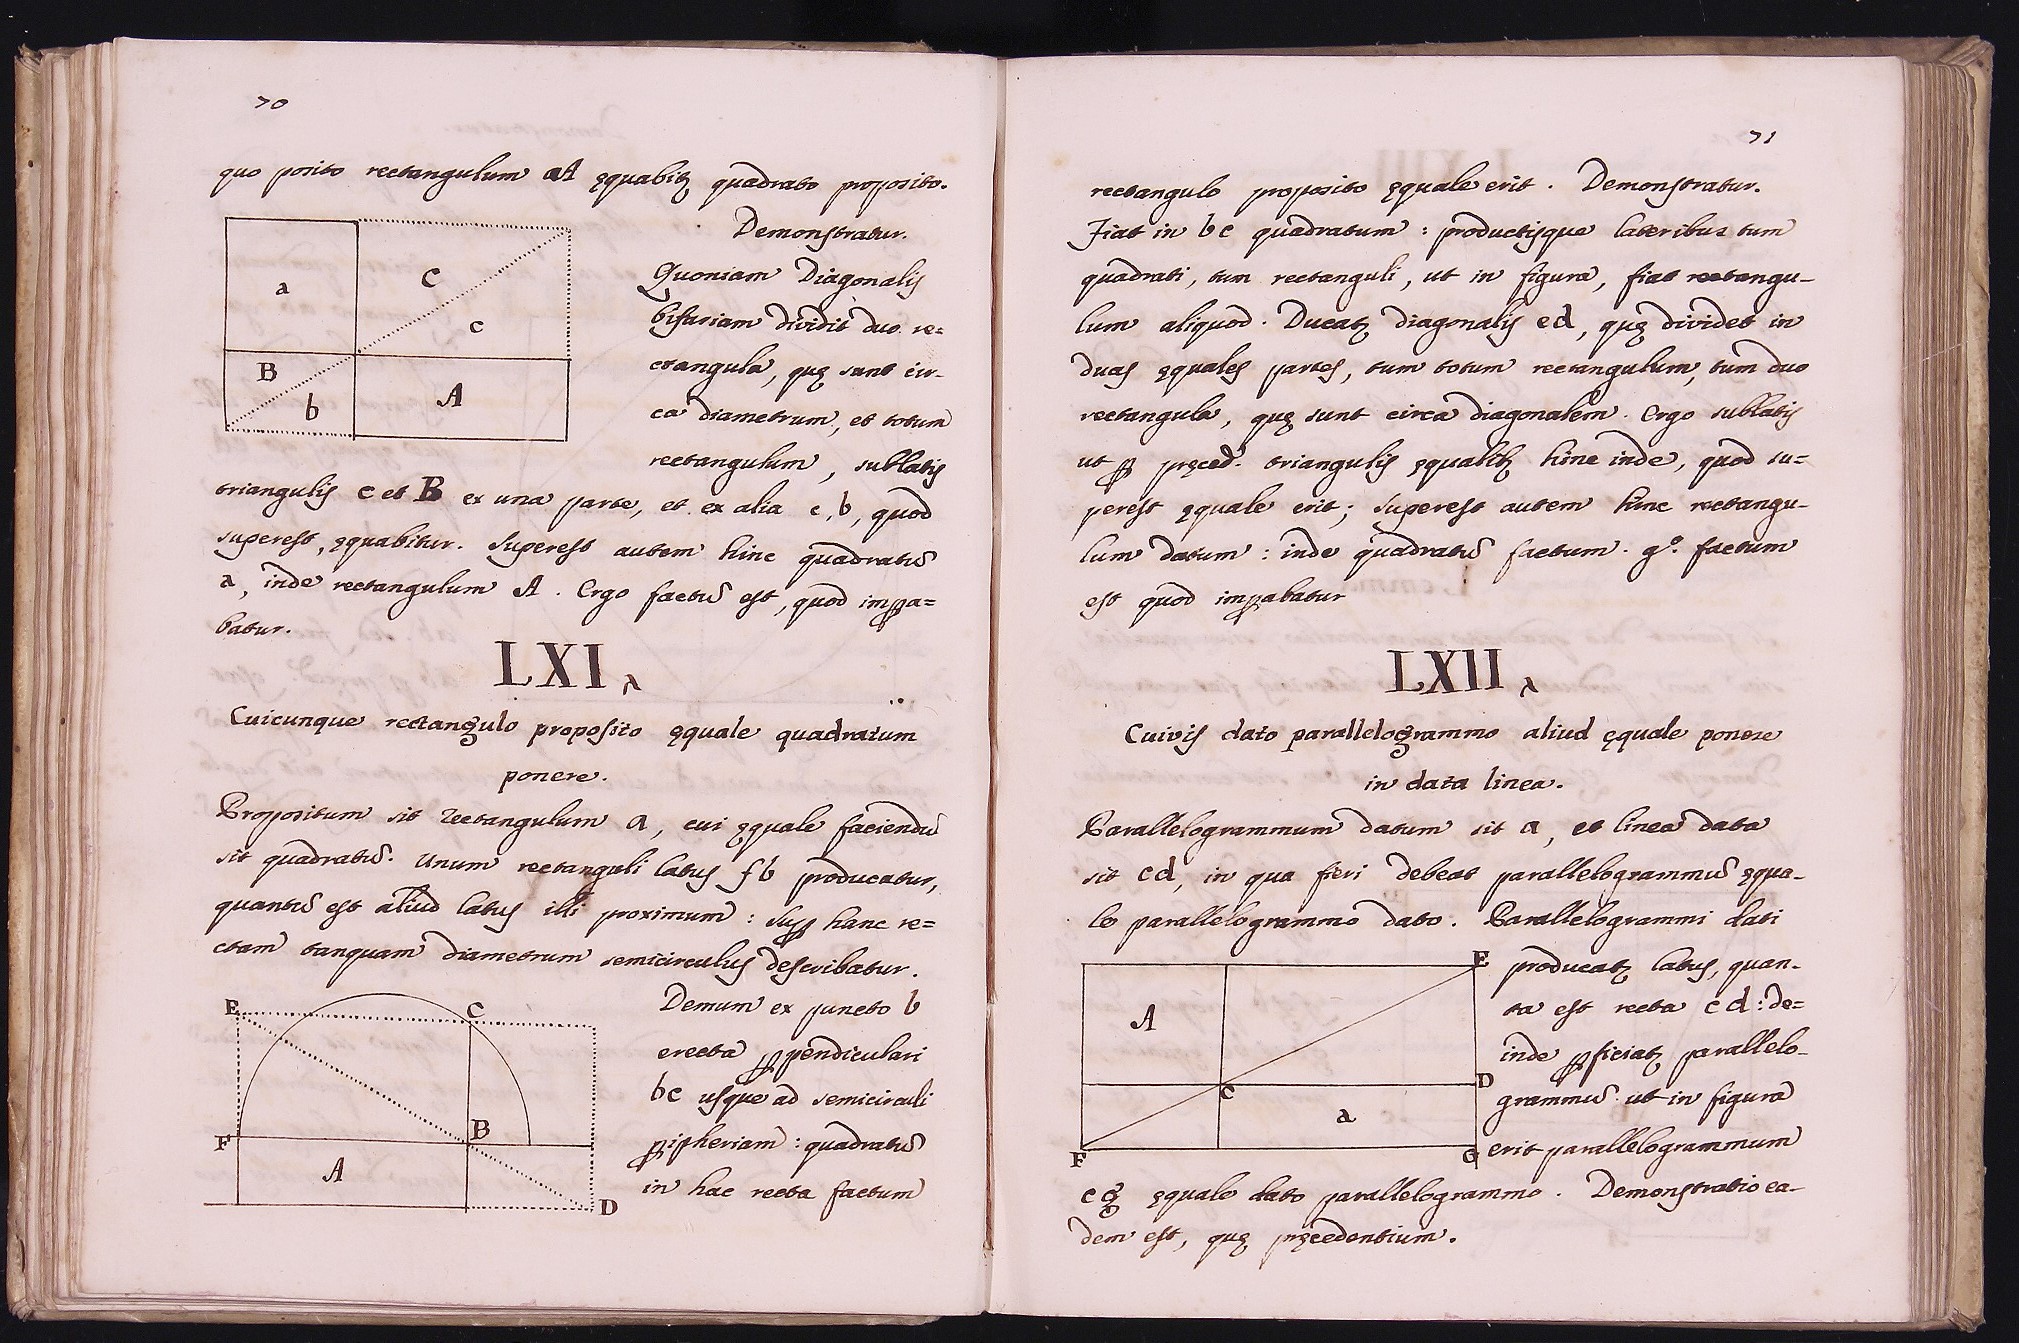 70
quo posito rectangulum A ęquabitʒ quadrato proposito.
Demonstratur.
Quoniam Diagonalis
bifariam dividit duo re=
ctangula, quę sunt cir-
ca diametrum, et totum
rectangulum, sublatis
triangulis c et B ex una parte, et ex alia c, b, quod
superest, ęquabitur. Superest autem hinc quadratũ
a, inde rectangulum A. Ergo factũ est, quod impa=
batur.
a
C
c
B
b
A
LXI
Cuicunque rectangulo proposito ęquale quadratum
ponere.
Propositum sit rectangulum a, cui ęquale faciendũ
sit quadratũ. Unum rectanguli latus fb producatur,
quantũ est aliud latus illi proximum: Sup hanc re=
ctam tanquam diametrum semicirculus describatur.
Demum ex puncto b
erecta ꝑpendiculari
bc usque ad semicirculi
ꝑipheriam: quadratũ
in hac recta factum
E
C
F
B
A
D
71
rectangulo proposito ęquale erit. Demonstratur.
Fiat in bc quadratum: productisque lateribus tum
quadrati, tum rectanguli, ut in figura, fiat rectangu-
lum aliquod. Ducatʒ diagonalis ed, quę dividet in
duas ęquales partes, tum totum rectangulum, tum duo
rectangula, quę sunt circa diagonalem. Ergo sublatis
ut ꝑ pręced. triangulis ęqualibʒ hinc inde, quod su=
perest ęquale erit; superest autem hinc rectangu-
lum datum: inde quadratũ factum. gº. factum
est quod imꝑabatur
LXII
Cuivis dato parallelogrammo aliud ęquale ponere
in data linea.
Parallelogrammum datum sit a, et linea data
sit cd, in qua fieri debeat parallelogrammũ ęqua-
le parallelogrammo dato. Parallelogrammi dati
producatʒ latus, quan-
ta est recta cd: de=
inde ꝑficiatʒ parallelo-
grammũ ut in figura
erit parallelogrammum
cg ęquale dato parallelogrammo. Demonstratio ea-
dem est, quę pręcedentium.
E
A
C
D
a
F
G